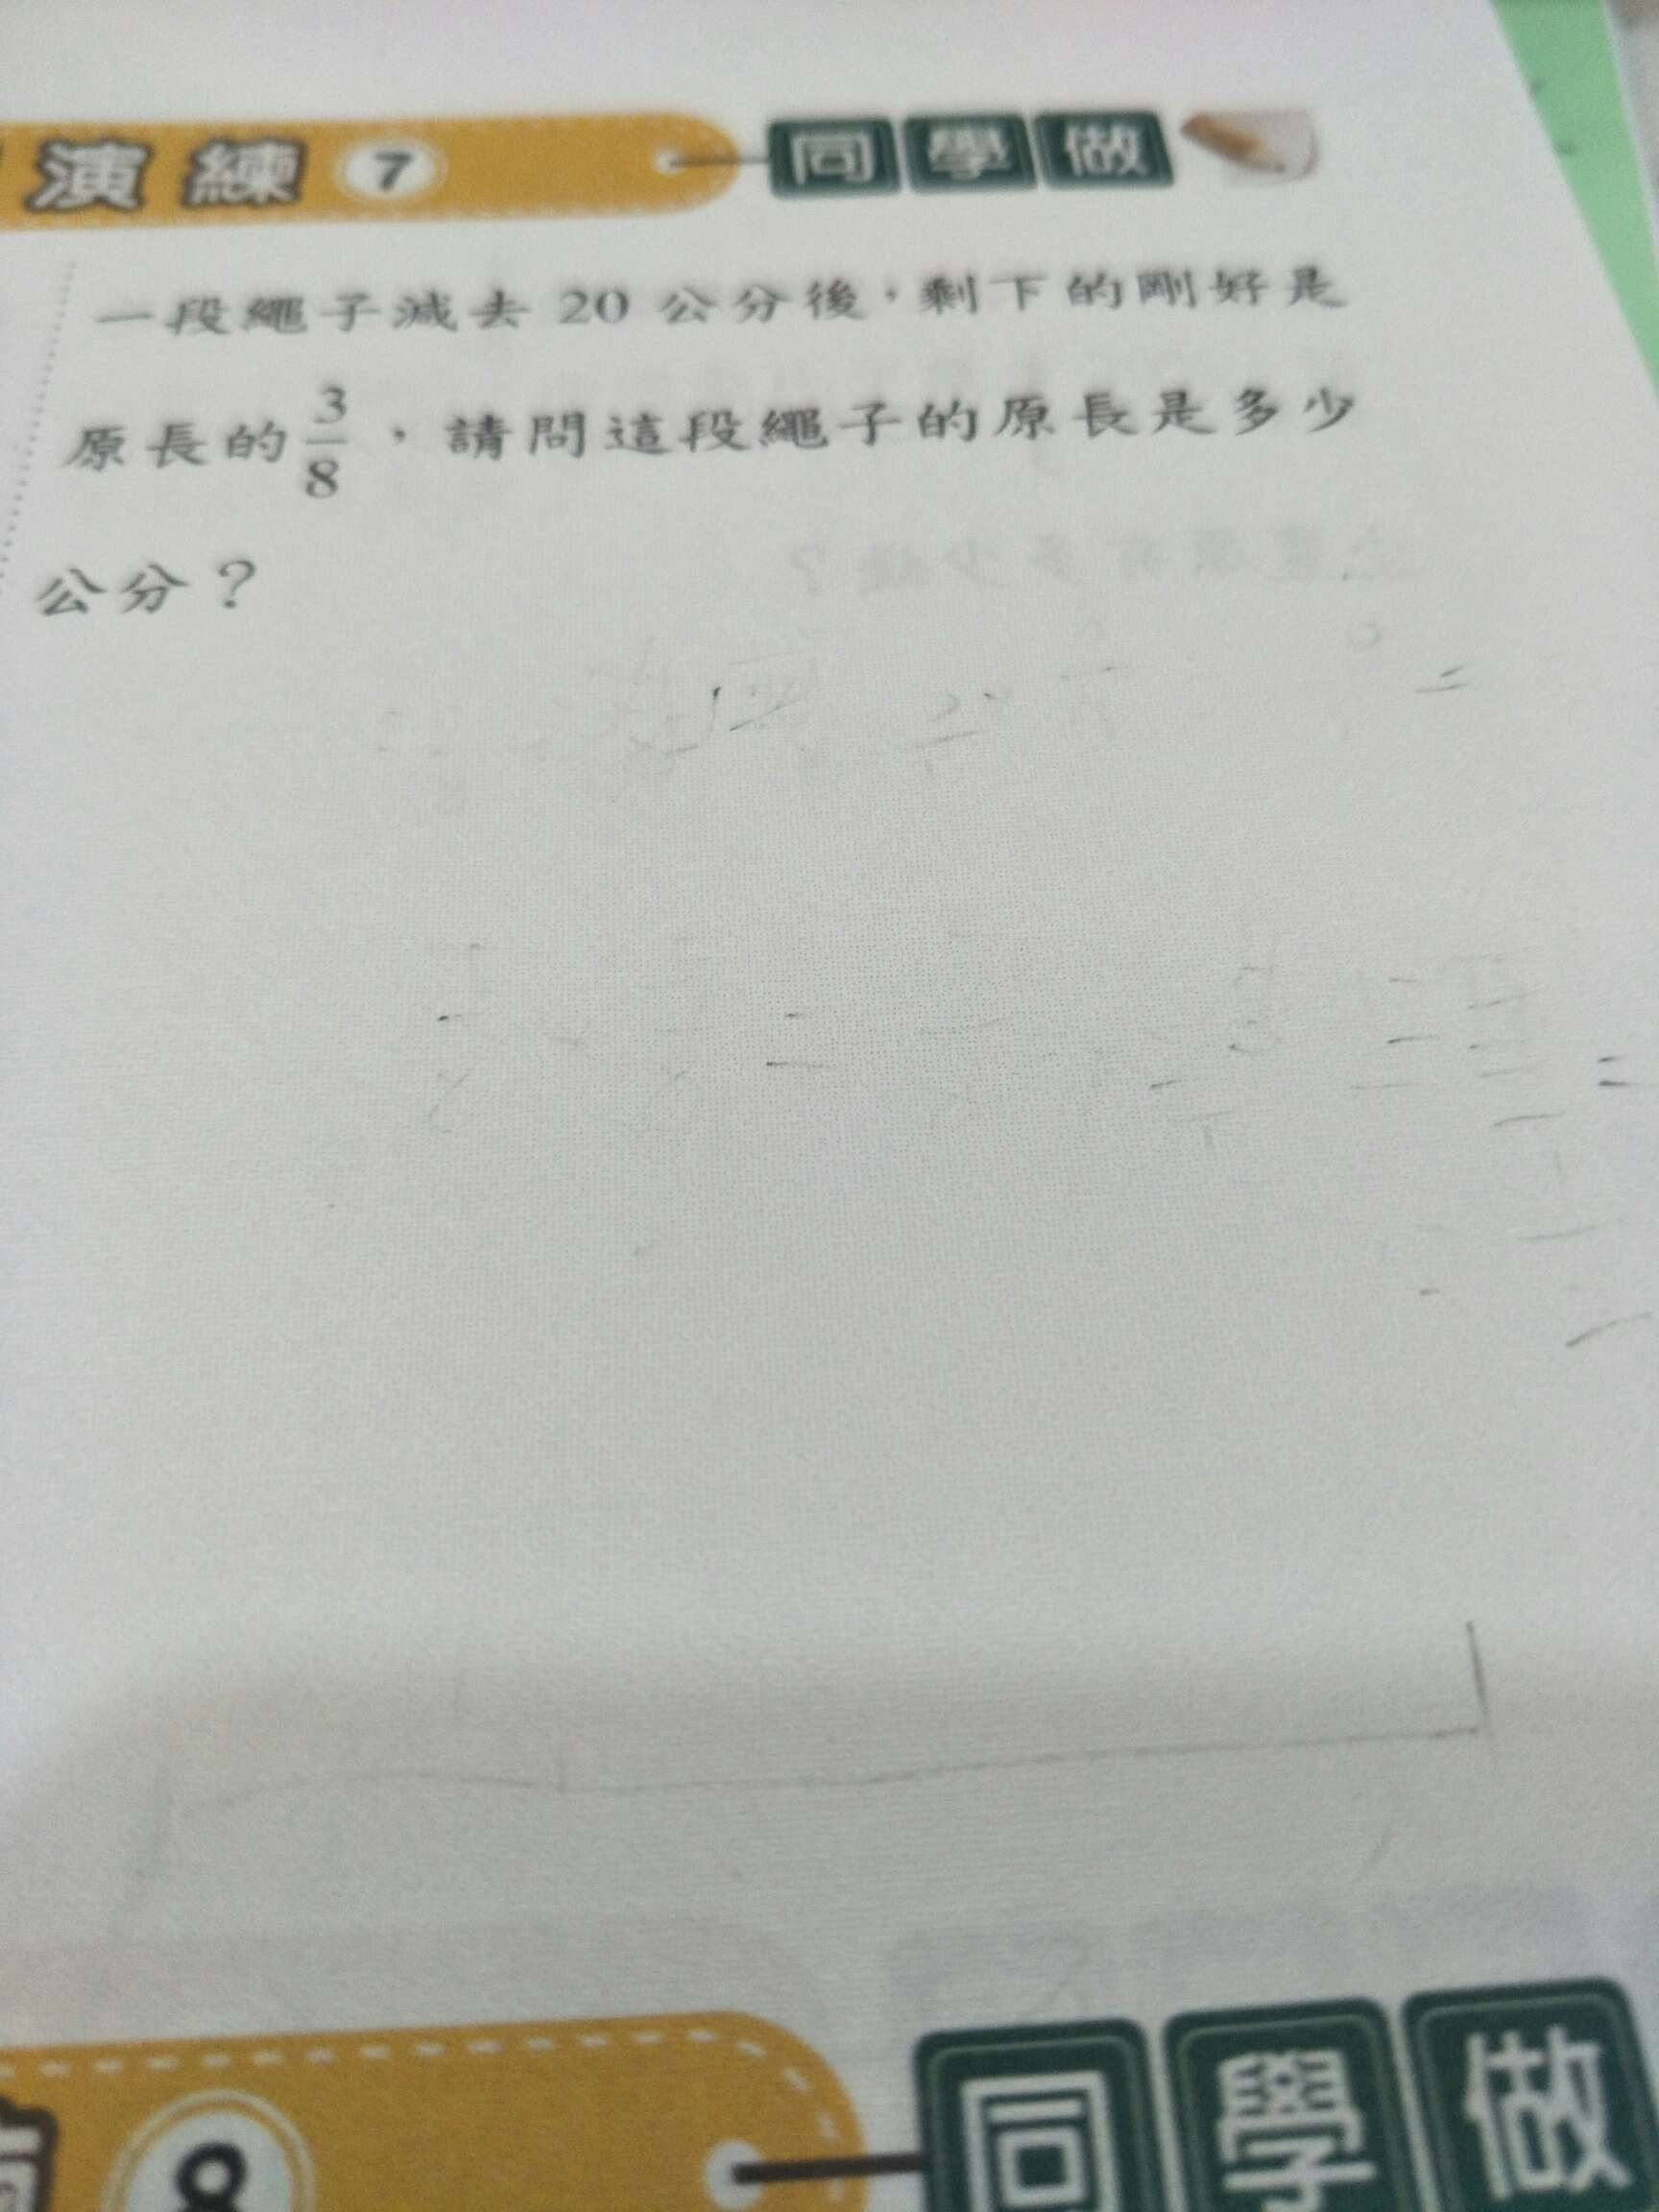 演練 7 同學做
一段繩子減去 20 公分後，剩下的剛好是
原長的3/8，請問這段繩子的原長是多少
公分？
8 同學做